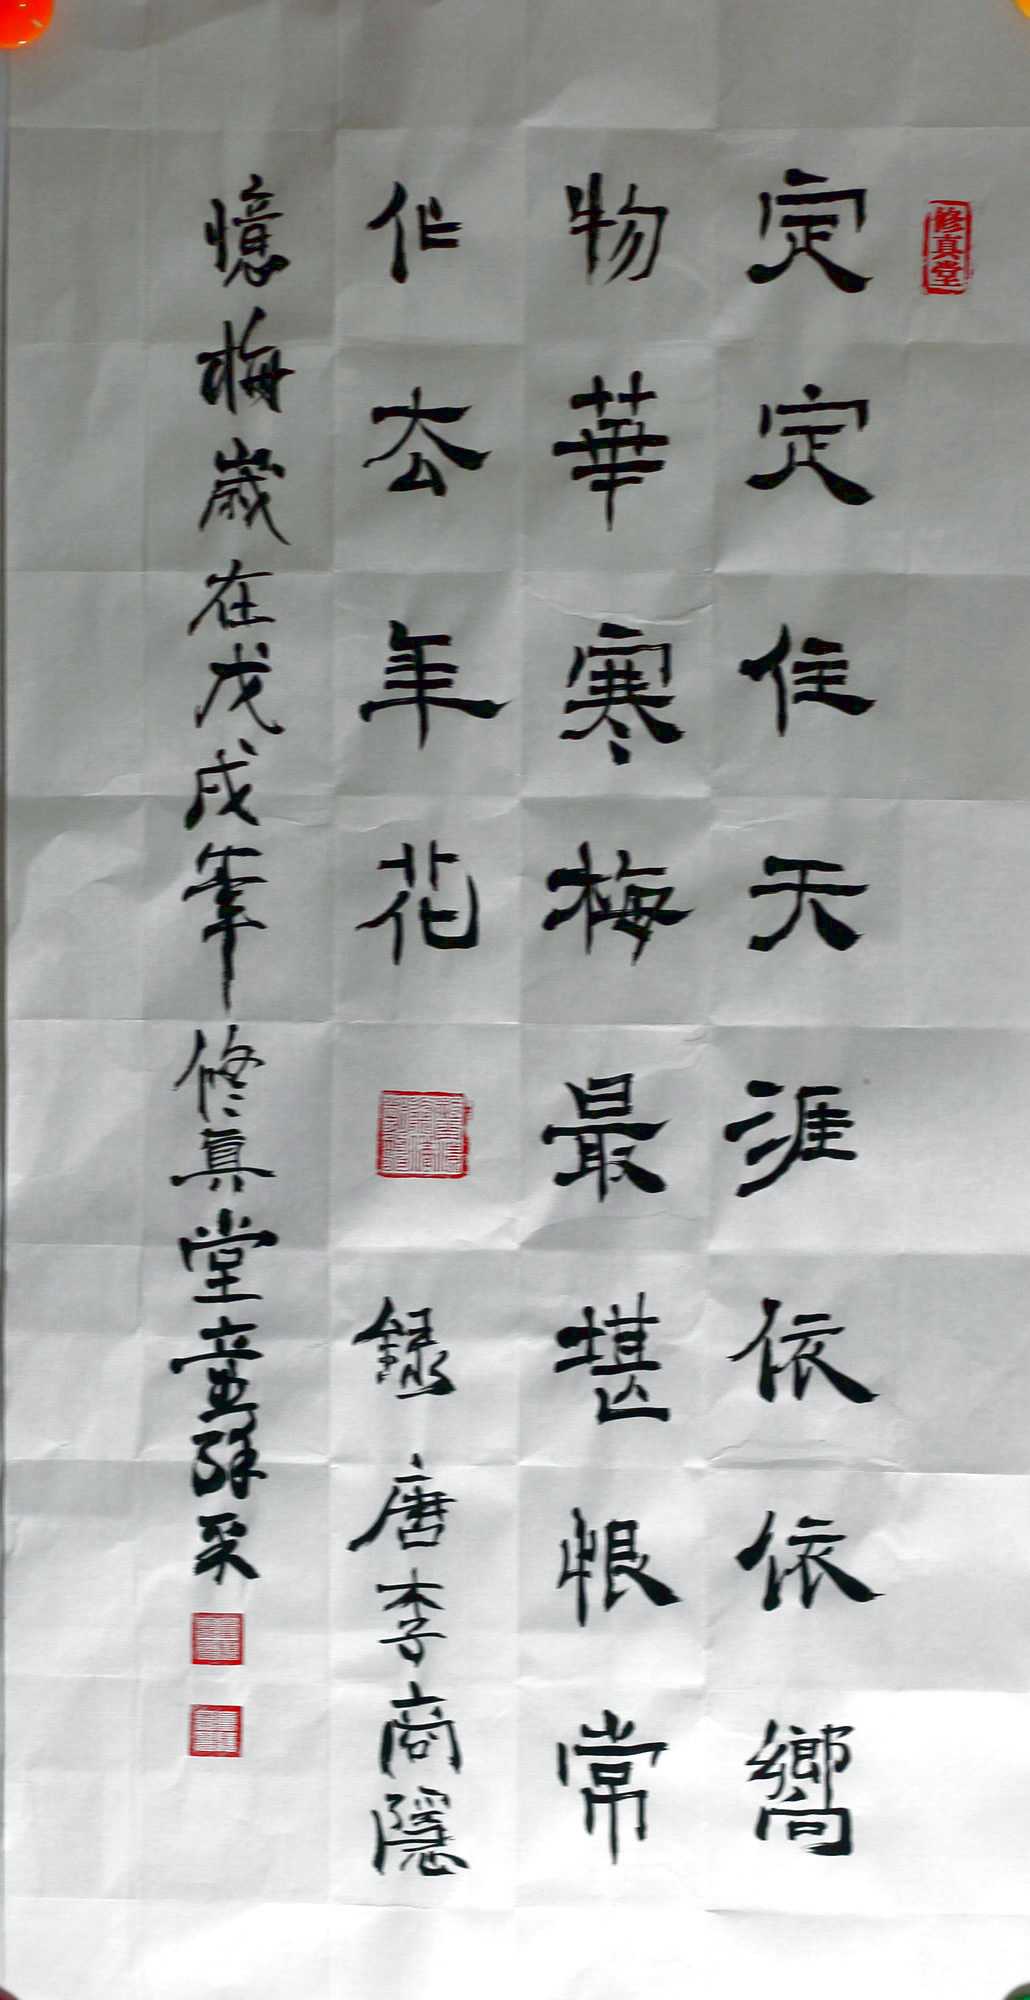 修真堂
定定住天涯依依嚮
物華寒梅最堪恨常
作去年花
錄唐李商隱
憶梅歲在戊戌年修真堂童